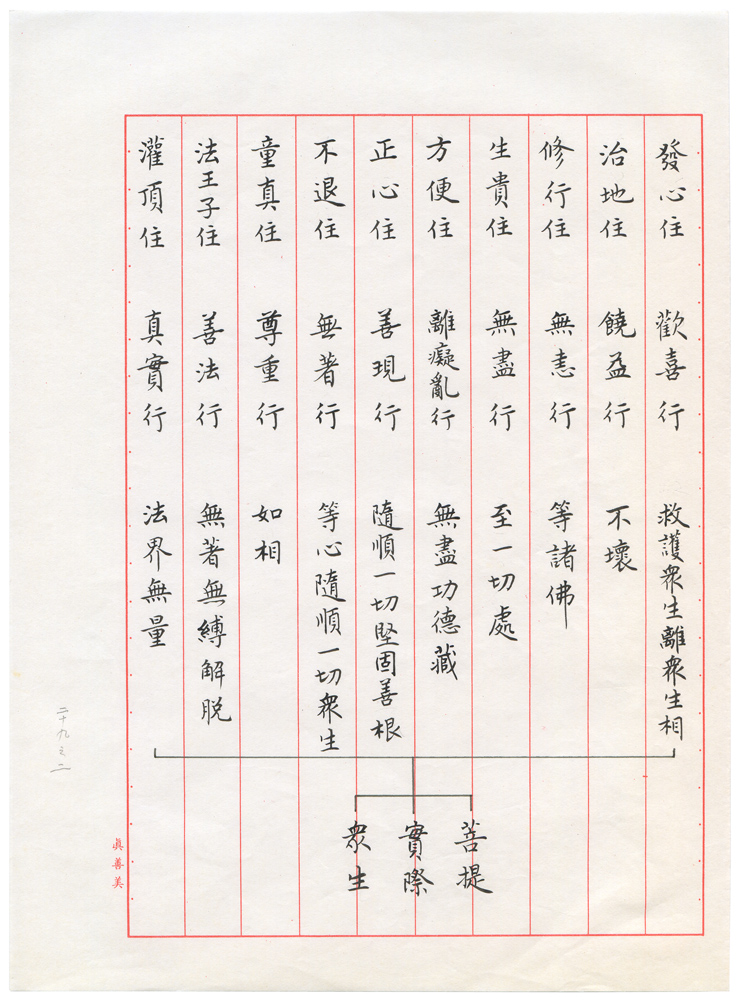 發心住　歡喜行　救護眾生離眾生相
治地住　饒益行　不壞
修行住　無恚行　等諸佛
生貴住　無盡行　至一切處
方便住　離癡亂行　無盡功德藏
正心住　善現行　隨順一切堅固善根
不退住　無著行　等心隨順一切眾生
童真住　尊重行　如相
法王子住　善法行　無著無縛解脫
灌頂住　真實行　法界無量
菩提
實際
眾生
二十九之二
真善美